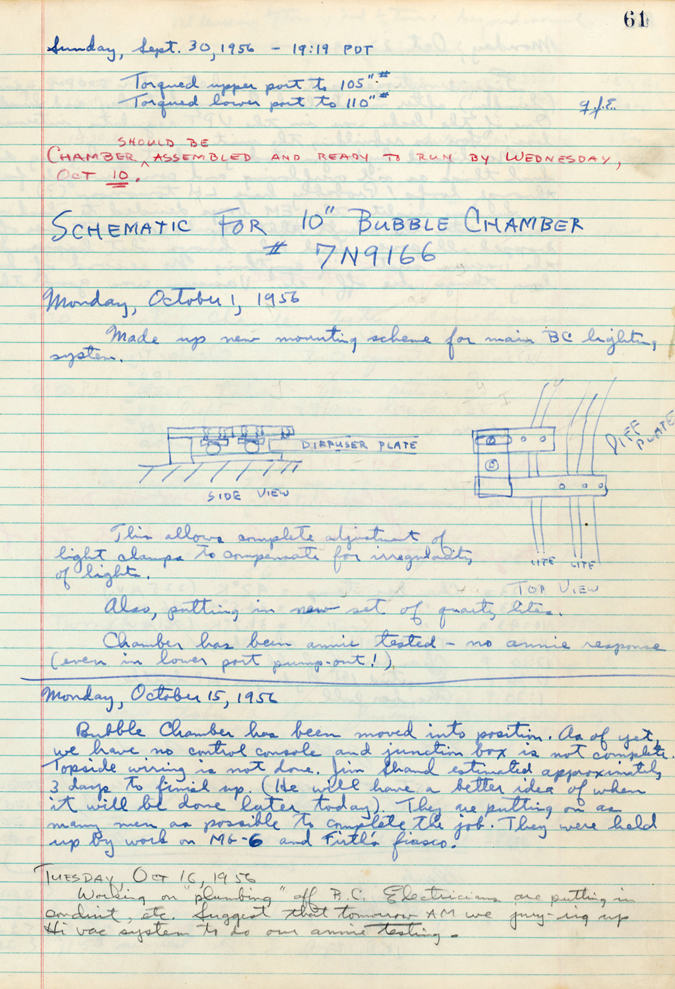 61
Sunday, Sept. 30, 1956 – 19:19 PDT
Torqued upper port to 105"#
Torqued lower port to 110"#
g.f.E.
SHOULD BE
CHAMBER ^ ASSEMBLED AND READY TO RUN BY WEDNESDAY,
OCT 10.
SCHEMATIC FOR 10" BUBBLE CHAMBER
# 7N9166
Monday, October 1, 1956
Made up new mounting scheme for main BC lighting
system.
DIFFUSER PLATE
SIDE VIEW
DIFF PLATE
LITE LITE
TOP VIEW
This allows complete adjustment of
light clamps to compensate for irregularity
of lights.
Also, putting in new set of quartz lites.
Chamber has been annie tested – no annie response
(even in lower port pump-out!).
Monday, October 15, 1956
Bubble Chamber has been moved into position. As of yet,
we have no control console and junction box is not complete.
Topside wiring is not done. Jim Shand estimated approximately
3 days to finish up. (He will have a better idea of when
it will be done later today). They are putting on as
many men as possible to complete the job. They were held
up by work on MG-6 and Firth's fiasco.
TUESDAY, OCT 16, 1956
Working on "plumbing" off B.C. Electricians are putting in
conduit, etc. Suggest that tomorrow AM we jury-rig up
Hi vac system to do our annie testing.